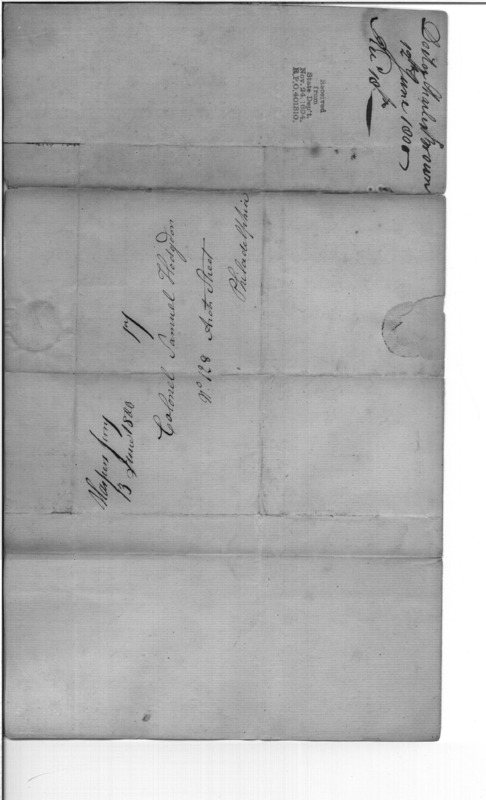 Doctor Charles Brown
12th June 1800
Rec 18th
Received
from
State Dep't.
Nov. 24 1894,
R.P.O. 401310.
Harpers ferry
13 June 1800
17
Colonel Samuel Hodgdon
No 128 Arch Street
Philadelphia